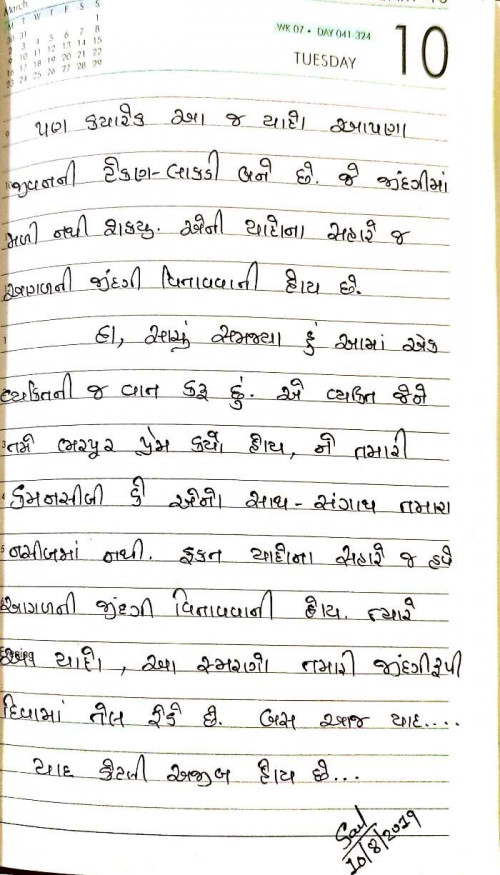 March
M T W T F S S
1
30 31
2 3 4 5 6 7 8
9 10 11 12 13 14 15
16 17 18 19 20 21 22
23 24 25 26 27 28 29
WK 07 • DAY 041-324
TUESDAY
10
પણ ક્યારેક આ જ યાદો આપણા
જીવનની ટેકણ-લાકડી બને છે. જે જીંદગીમાં
મળી નથી શક્યુ. એની યાદોના સહારે જ
આગળની જીંદગી વિતાવવાની હોય છે.
હા, સાચું સમજ્યા હું આમાં એક
વ્યક્તિની જ વાત કરૂ છું. એ વ્યક્તિ જેને
તમે ભરપૂર પ્રેમ કર્યો હોય, ને તમારી
કમનસીબી કે એનો સાથ-સંગાથ તમારા
નસીબમાં નથી. ફક્ત યાદોના સહારે જ હવે
આગળની જીંદગી વિતાવવાની હોય. ત્યારે
યાદો, આ સ્મરણો તમારી જીંદગીરૂપી
દિવામાં તેલ રેડે છે. બસ આજ યાદ....
યાદ કેટલી અજીબ હોય છે...
10/8/2019